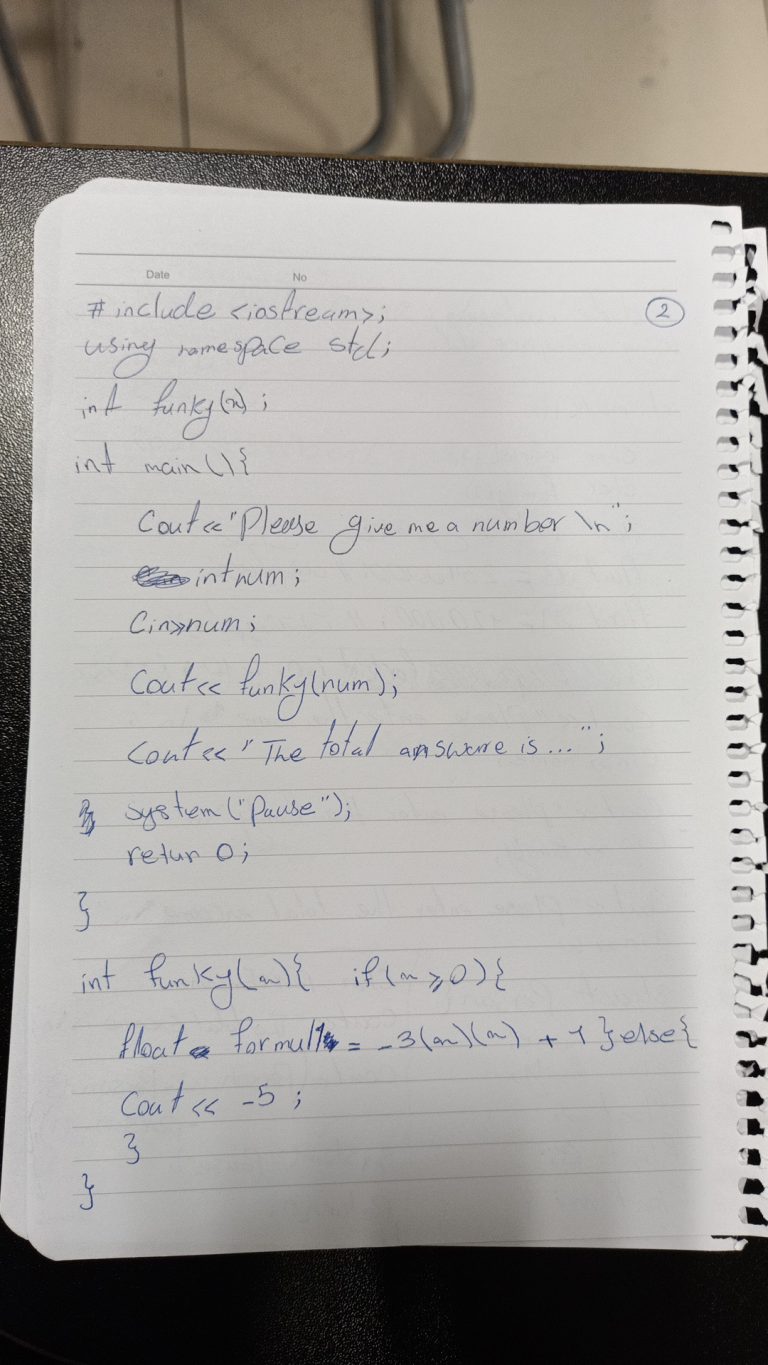 Date No
#include <iostream>; 2
using namespace std;
int funky(n);
int main(){
Cout<<"Please give me a number \n";
int num;
Cin>>num;
Cout<< funky(num);
Cout<< "The total answare is...";
system("Pause");
retur 0;
}
int funky(n){ if(n ≥ 0){
float = -3(n)(n) + 1 }else{
Cout << -5 ;
}
}